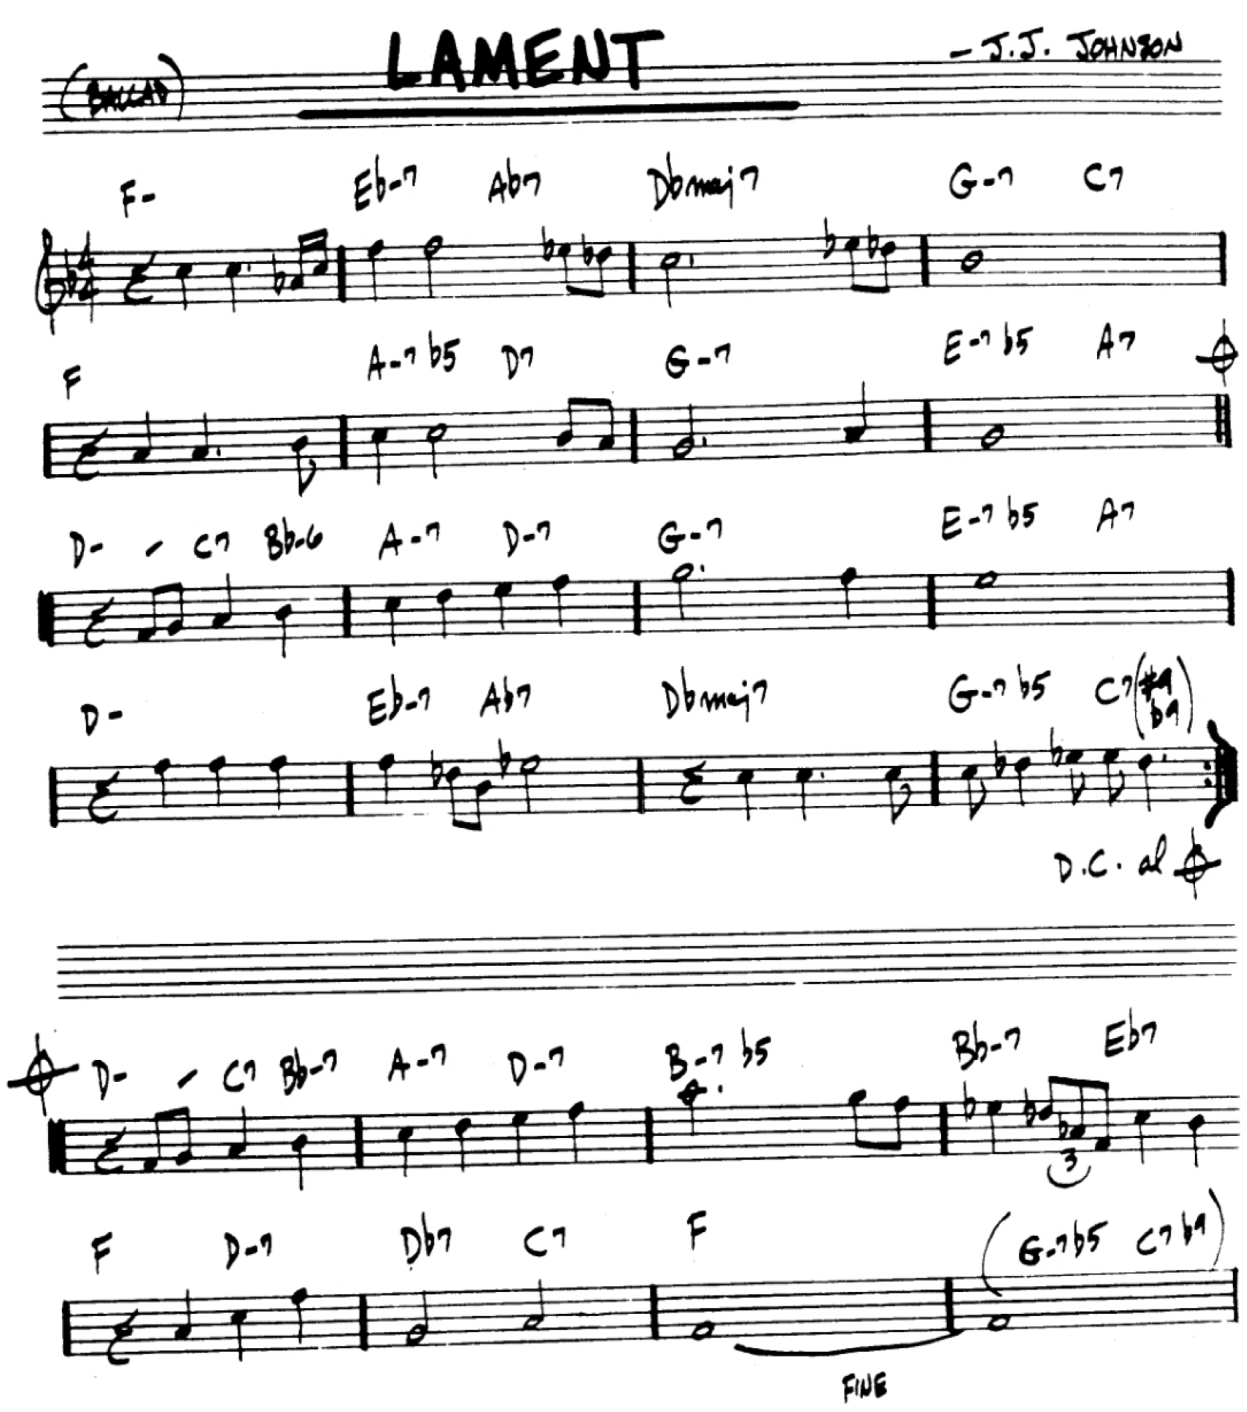 (BALLAD) LAMENT - J.J. JOHNSON
F- Eb-7 Ab7 Dbmaj7 G-7 C7
4
4
F A-7b5 D7 G-7 E-7b5 A7
D- - C7 Bb-6 A-7 D-7 G-7 E-7b5 A7
D- Eb-7 Ab7 Dbmaj7 G-7b5 C7(#9 b9)
D.C. al
D- - C7 Bb-7 A-7 D-7 B-7b5 Bb-7 Eb7
3
F D-7 Db7 C7 F (G-7b5 C7b9)
FINE